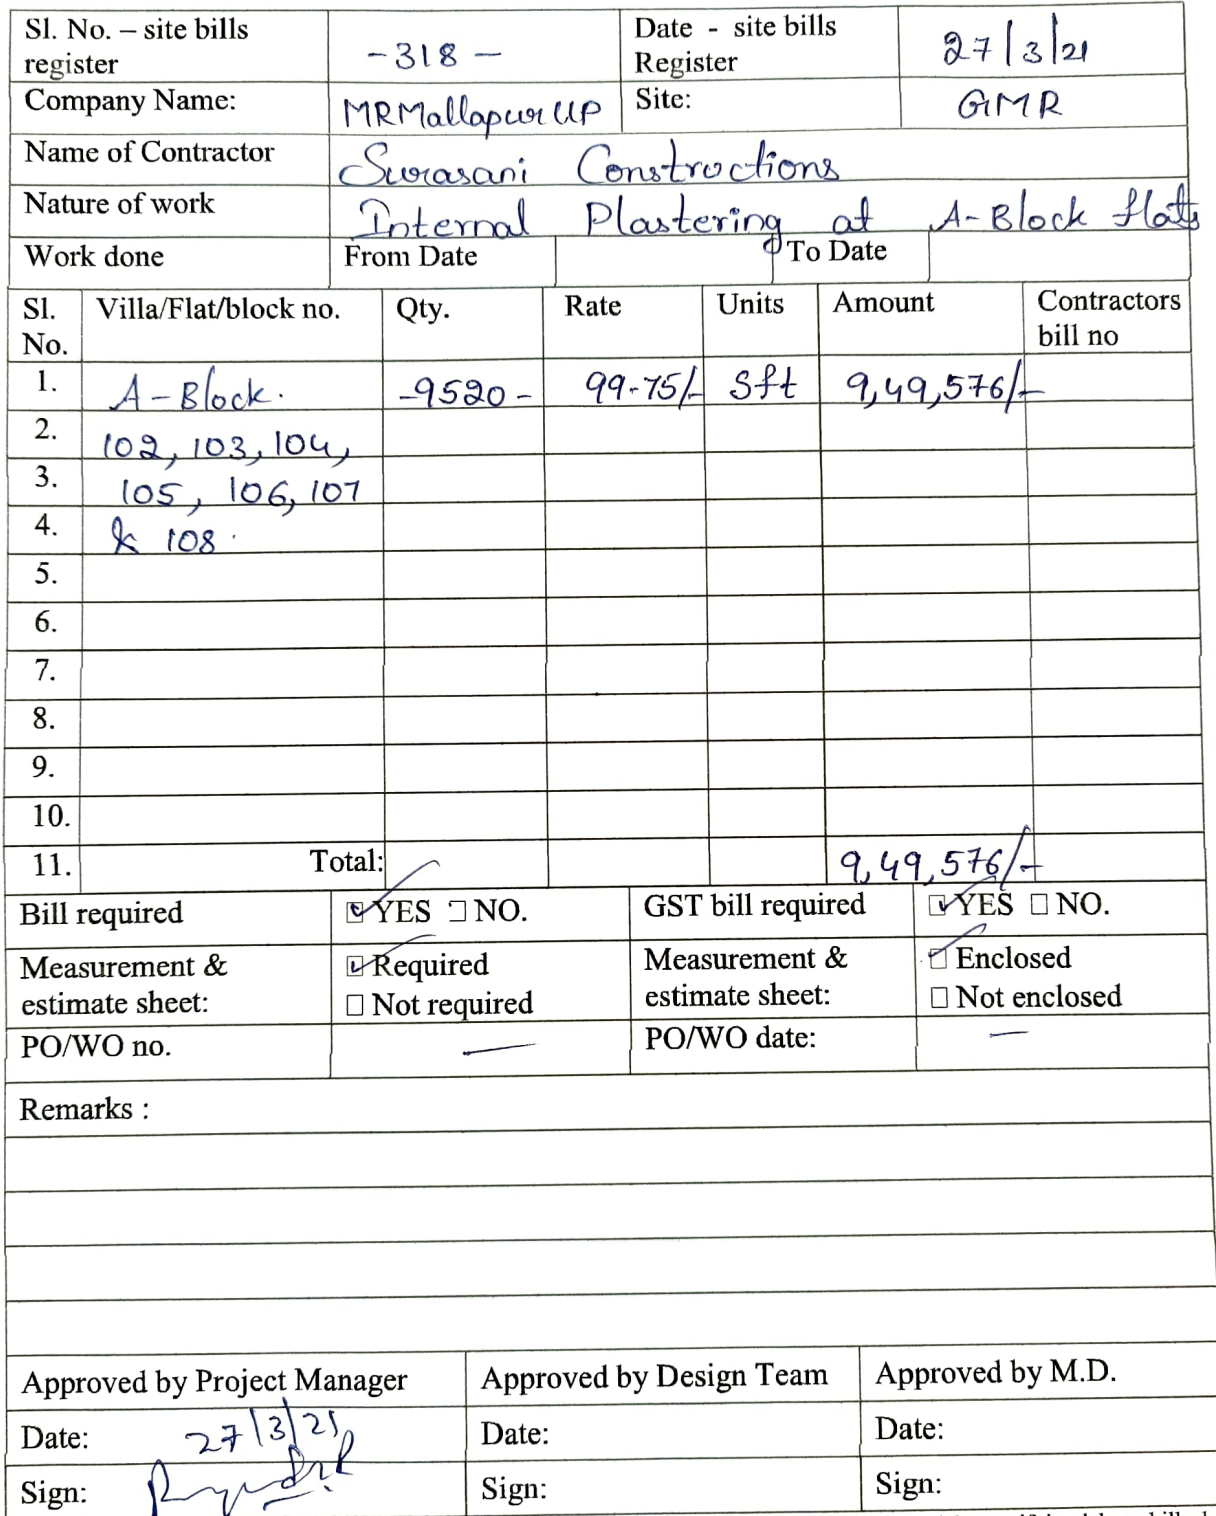 Sl. No. – site bills register -318- Date - site bills Register 27/3/21
Company Name: MRMallapur LLP Site: GMR
Name of Contractor Surasani Constructions
Nature of work Internal Plastering at A-Block flats
Work done From Date To Date
Sl. No. Villa/Flat/block no. Qty. Rate Units Amount Contractors bill no
1. A-Block. -9520- 99-75/- Sft 9,49,576/-
2. 102, 103, 104,
3. 105, 106, 107
4. & 108.
5.
6.
7.
8.
9.
10.
11. Total: 9,49,576/-
Bill required ☑ YES ☐ NO. GST bill required ☑ YES ☐ NO.
Measurement & estimate sheet: ☑ Required Measurement & estimate sheet: ☑ Enclosed
☐ Not required ☐ Not enclosed
PO/WO no. — PO/WO date: —
Remarks :
Approved by Project Manager Approved by Design Team Approved by M.D.
Date: 27/3/21 Date: Date:
Sign: Sign: Sign: